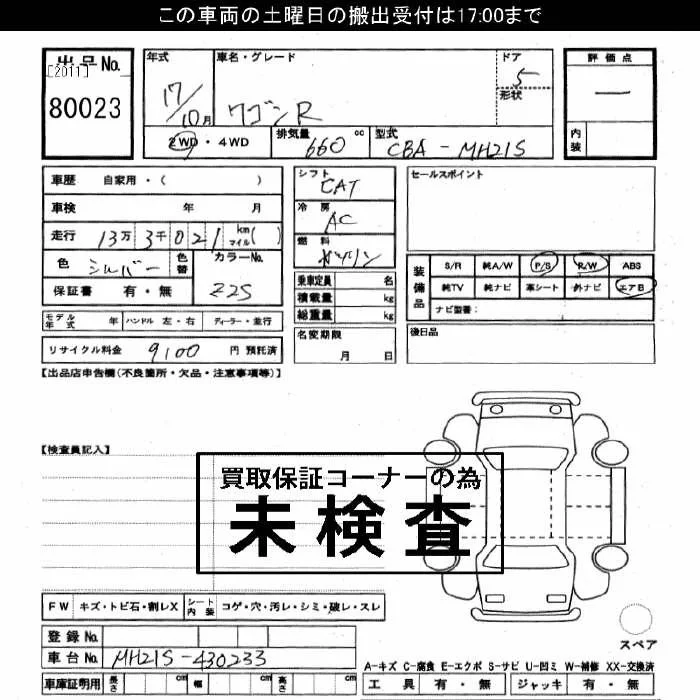 この車両の土曜日の搬出受付は17:00まで
出品No. [2011] 80023
年式 17/10月
車名・グレード ワゴンR
ドア 5
形状
評価点 ―
内装
2WD・4WD
排気量 660 cc
型式 CBA-MH21S
車歴 自家用・( )
車検 年 月
走行 13万3千021 km マイル( )
色 シルバー 色替
カラーNo. Z2S
保証書 有・無
シフト CAT
冷房 AC
燃料 ガソリン
乗車定員 名
積載量 kg
総重量 kg
名変期限 月 日
セールスポイント
装備品
S/R 純A/W P/S R/W ABS
純TV 純ナビ 革シート 外ナビ エアB
ナビ型番:
後日品
モデル年式 年 ハンドル 左・右 ディーラー・並行
リサイクル料金 9100 円 預託済
【出品店申告欄(不良箇所・欠品・注意事項等)】
【検査員記入】
買取保証コーナーの為
未検査
FW キズ・トビ石・割レX シート内装 コゲ・穴・汚レ・シミ・破レ・スレ
登録No.
車台No. MH21S-430233
車庫証明用 長さ cm 幅 cm 高さ cm
スペア
A-キズ C-腐食 E-エクボ S-サビ U-凹ミ W-補修 XX-交換済
工具 有・無 ジャッキ 有・無